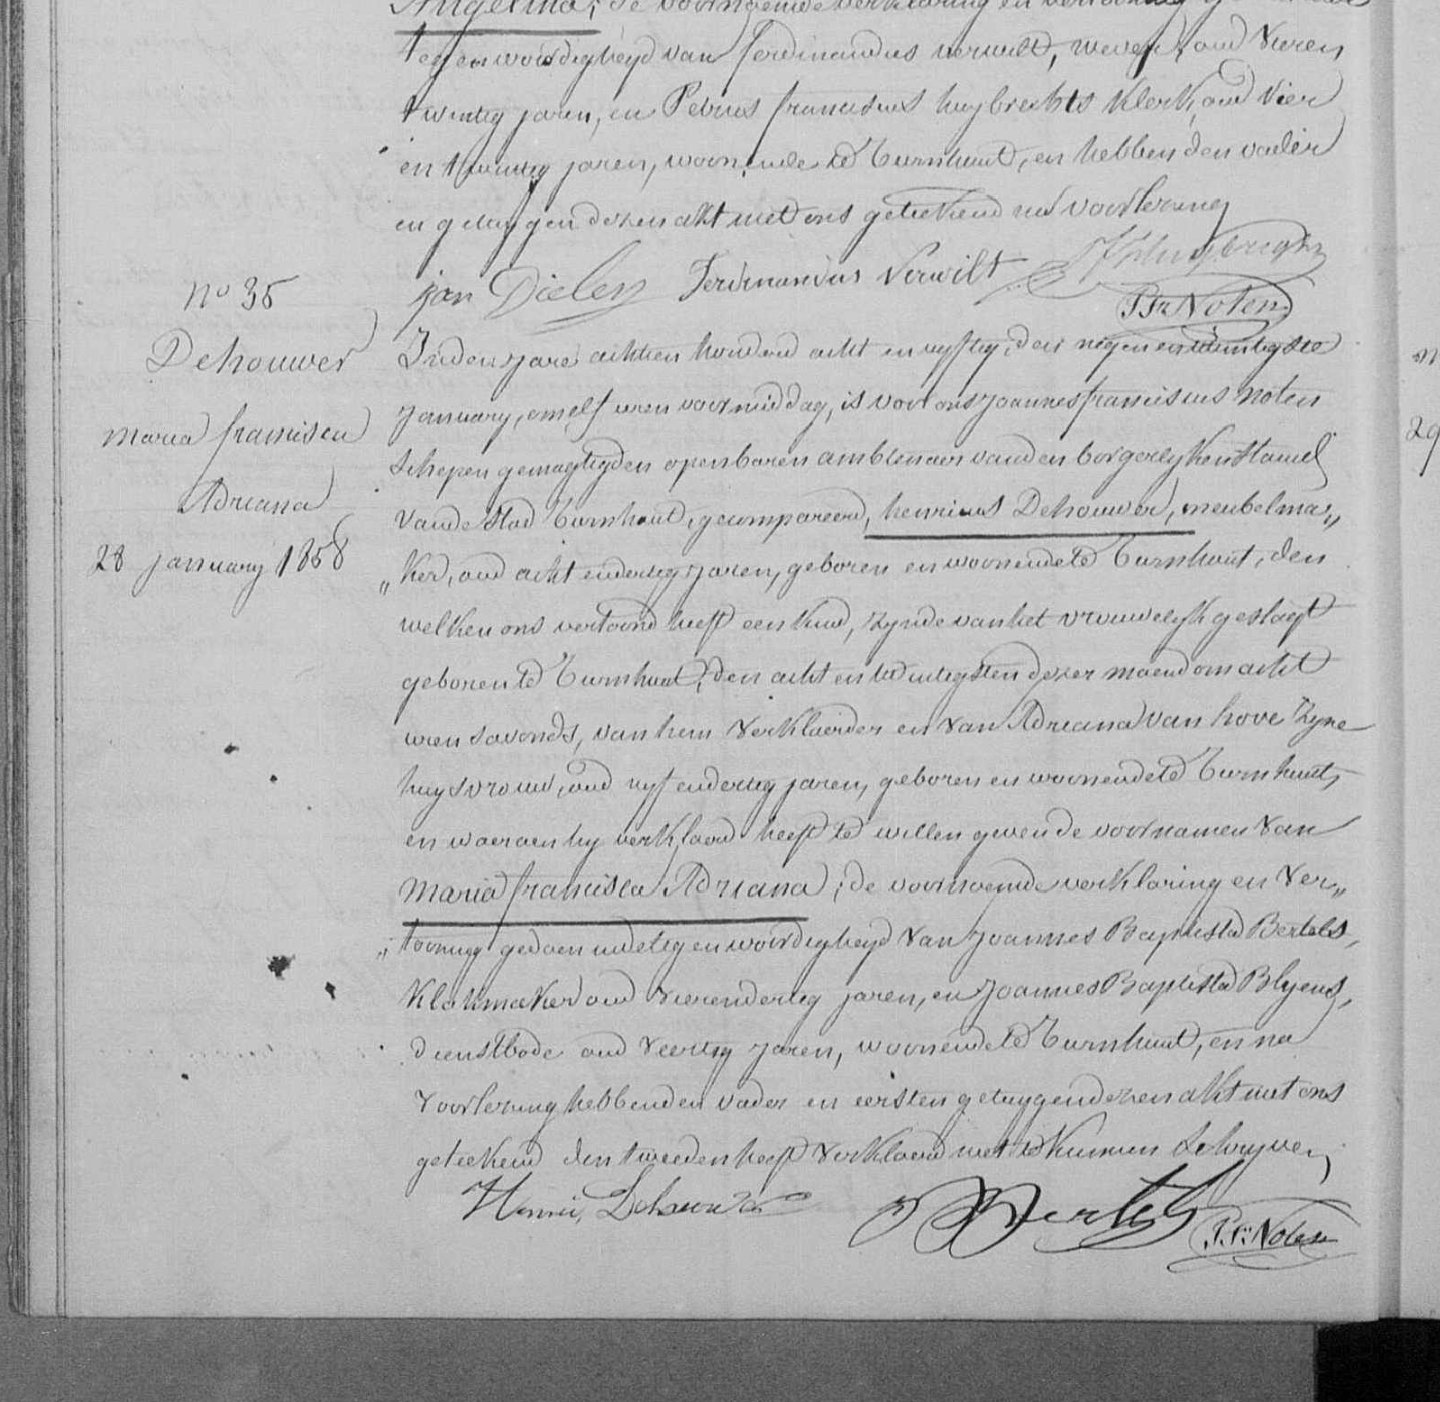 Angelina, de voornoemde verklaring en vertooning
tegenwoordigheyd van ferdinandus verwilt, wever, oud Vieren
twintig jaren, en Petrus franciscus huybrechts klerk, oud Vier
en twintig jaren, woonende te Turnhout, en hebben den vader
en getuygen dezen akt met ons geteekend na voorlezing
jan Dielen Ferdinandus Verwilt
J Fr Noten
No 35
Dehouwer
maria francisca
Adriana
28 january 1858
In den jare achtien honderd acht en vyftig, den negenentwintigste
January, om elf uren voormiddag, is voor ons Joannes franciscus Noten
schepen gemagtigden openbaren ambtenaer van den borgerlyken stand
van de stad Turnhout, gecompareerd, henricus Dehouwer, meubelma„
„ker, oud acht en dertig jaren, geboren en woonende te Turnhout, den
welken ons vertoond heeft een kind, zynde van het vrouwelyk geslagt
geboren te Turnhout, den acht en twintigsten dezer maend om acht
uren savonds, van hem Verklaerder en van Adriana van hove zyne
huysvrouw, oud vyf en dertig jaren, geboren en woonende te Turnhout,
en waeraen hy verklaard heeft te willen geven de voornamen Van
Maria francisca Adriana, de voornoemde verklaring en Ver„
„tooning gedaen in de tegenwoordigheyd Van Joannes Baptista Bertels,
klokmaker oud vierendertig jaren, en Joannes Baptista Blyens,
dienstbode oud veertig jaren, woonende te Turnhout, en na
Voorlezing hebben den vader en eersten getuygen dezen akt met ons
geteekend den tweeden heeft Verklaerd niet te kunnen schryven,
Henri Dehouwer Bertels J. Fr. Noten
29